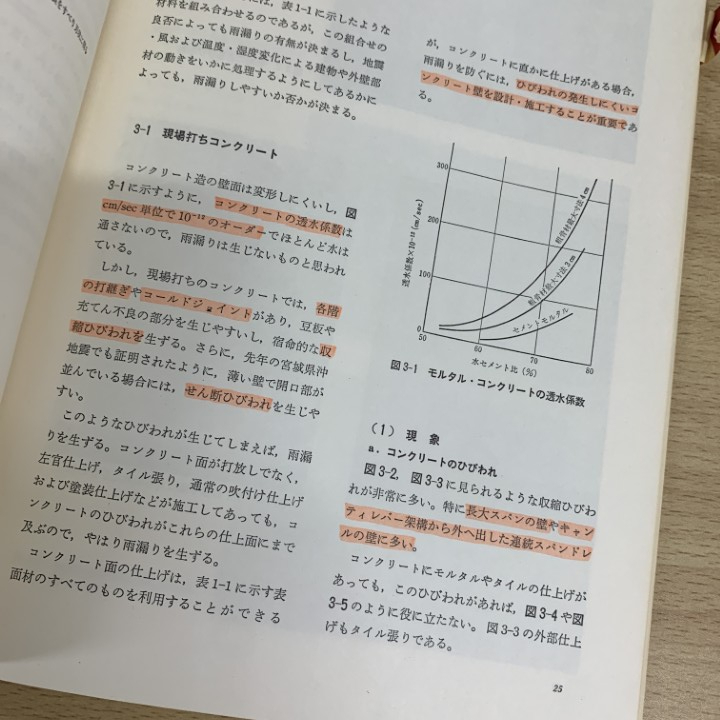 には，表1-1に示したような
材料を組み合わせるのであるが，この組合せの
良否によっても雨漏りの有無が決まるし，地震
・風および温度・湿度変化による建物や外壁部
材の動きをいかに処理するようにしてあるかに
よっても，雨漏りしやすいか否かが決まる。
3-1 現場打ちコンクリート
コンクリート造の壁面は変形しにくいし，図
3-1に示すように，コンクリートの透水係数は
cm/sec単位で10⁻¹⁰のオーダーでほとんど水は
通さないので，雨漏りは生じないものと思われ
ている。
しかし，現場打ちのコンクリートでは，各階
の打継ぎやコールドジョイントがあり，豆板や
充てん不良の部分を生じやすいし，宿命的な収
縮ひびわれを生ずる。さらに，先年の宮城県沖
地震でも証明されたように，薄い壁で開口部が
並んでいる場合には，せん断ひびわれを生じや
すい。
このようなひびわれが生じてしまえば，雨漏
りを生ずる。コンクリート面が打放しでなく，
左官仕上げ，タイル張り，通常の吹付け仕上げ
および塗装仕上げなどが施工してあっても，コ
ンクリートのひびわれがこれらの仕上面にまで
及ぶので，やはり雨漏りを生ずる。
コンクリート面の仕上げは，表1-1に示す表
面材のすべてのものを利用することができる
が，コンクリートに直かに仕上げがある場合，
雨漏りを防ぐには，ひびわれの発生しにくいコ
ンクリート壁を設計・施工することが重要であ
る。
300
200
100
0
50
60
70
80
透水係数×10⁻¹⁰(cm/sec)
粗骨材最大寸法4cm
粗骨材最大寸法2cm
セメントモルタル
水セメント比(%)
図3-1 モルタル・コンクリートの透水係数
(1) 現象
a．コンクリートのひびわれ
図3-2，図3-3に見られるような収縮ひびわ
れが非常に多い。特に長大スパンの壁やキャン
ティレバー架構から外へ出した連続スパンドレ
ルの壁に多い。
コンクリートにモルタルやタイルの仕上げが
あっても，このひびわれがあれば，図3-4や図
3-5のように役に立たない。図3-3の外部仕上
げもタイル張りである。
25